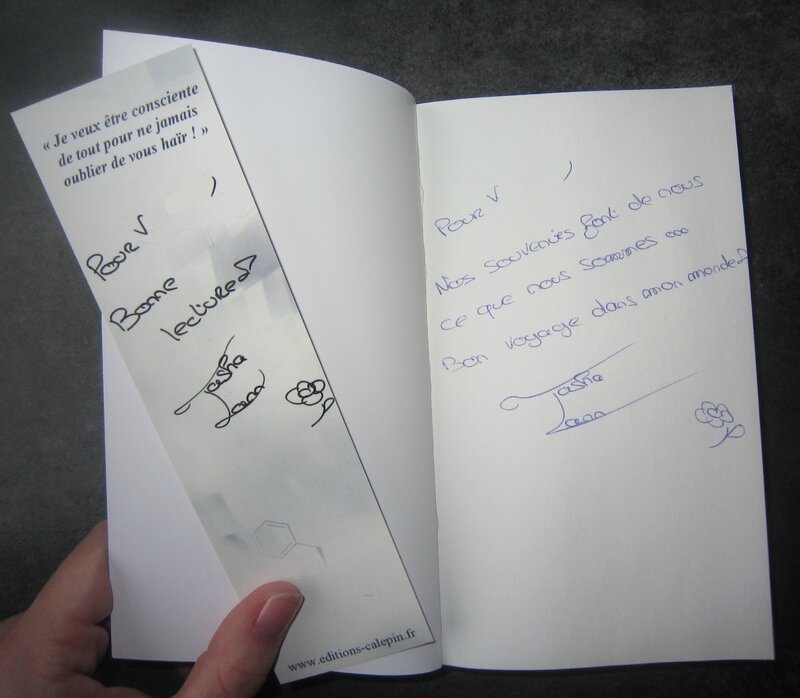 « Je veux être consciente
de tout pour ne jamais
oublier de vous haïr ! »
Pour V ,
Bonne
lecture
Tasha
Lann
www.editions-calepin.fr
Pour V ,
Nos souvenirs font de nous
ce que nous sommes ...
Bon voyage dans mon monde
Tasha
Lann